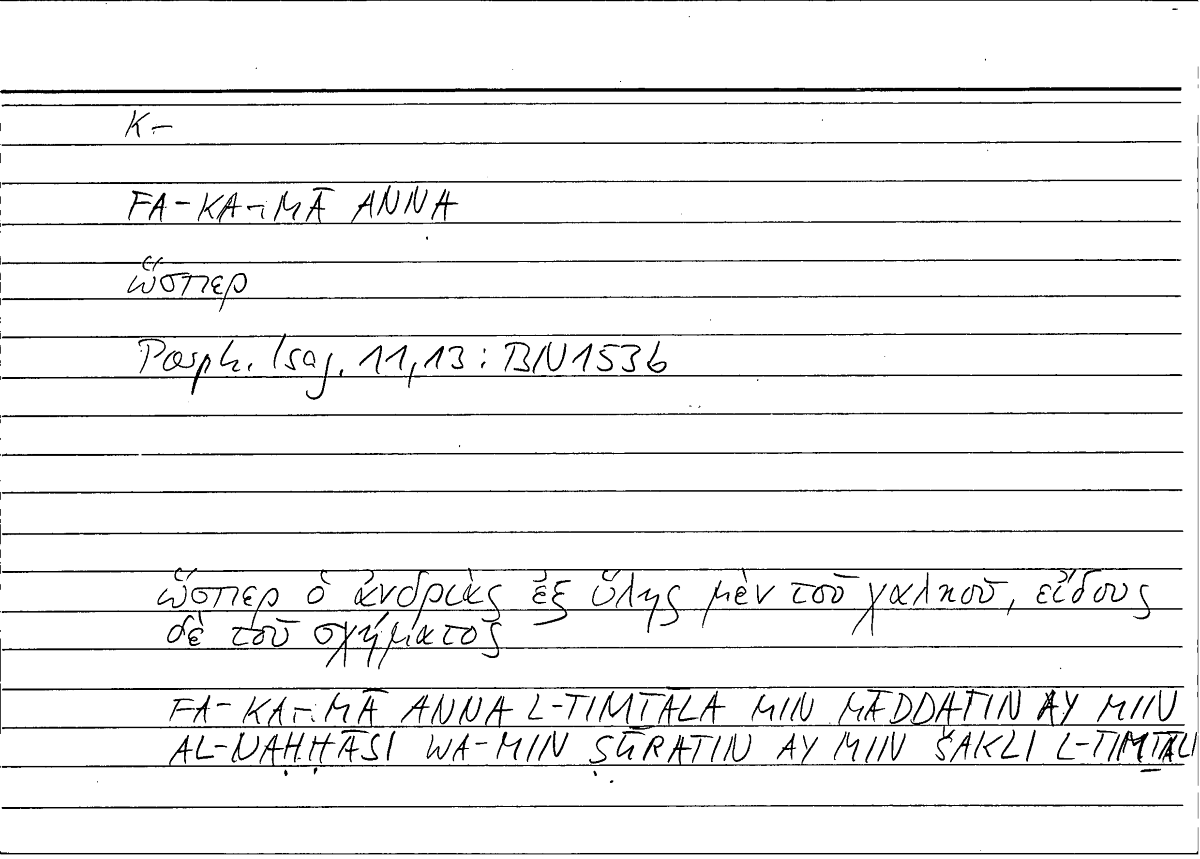 K–
FA-KA-MĀ ANNA
ὥσπερ
Porph. Isag. 11,13 : BN153b
ὥσπερ ὁ ἀνδριὰς ἐξ ὕλης μὲν τοῦ χαλκοῦ, εἴδους
δὲ τοῦ σχήματος
FA-KA-MĀ ANNA L-TIMṮĀLA MIN MĀDDATIN AY MIIN
AL-NAḤḤĀSI WA-MIN ṢŪRATIN AY MIN ŠAKLI L-TIMṮĀLI